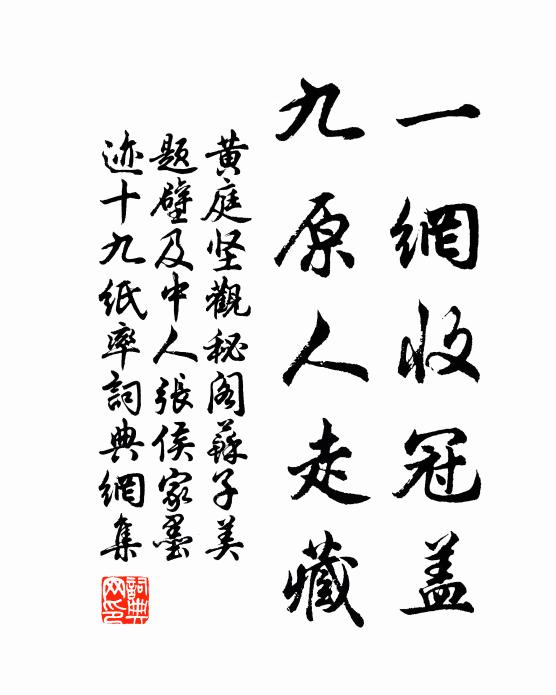 一網收冠盖
九原人走藏
黄庭坚觀秘阁蘇子美
题壁及中人張侯家墨
迹十九紙率詞典網集
詞典
网印